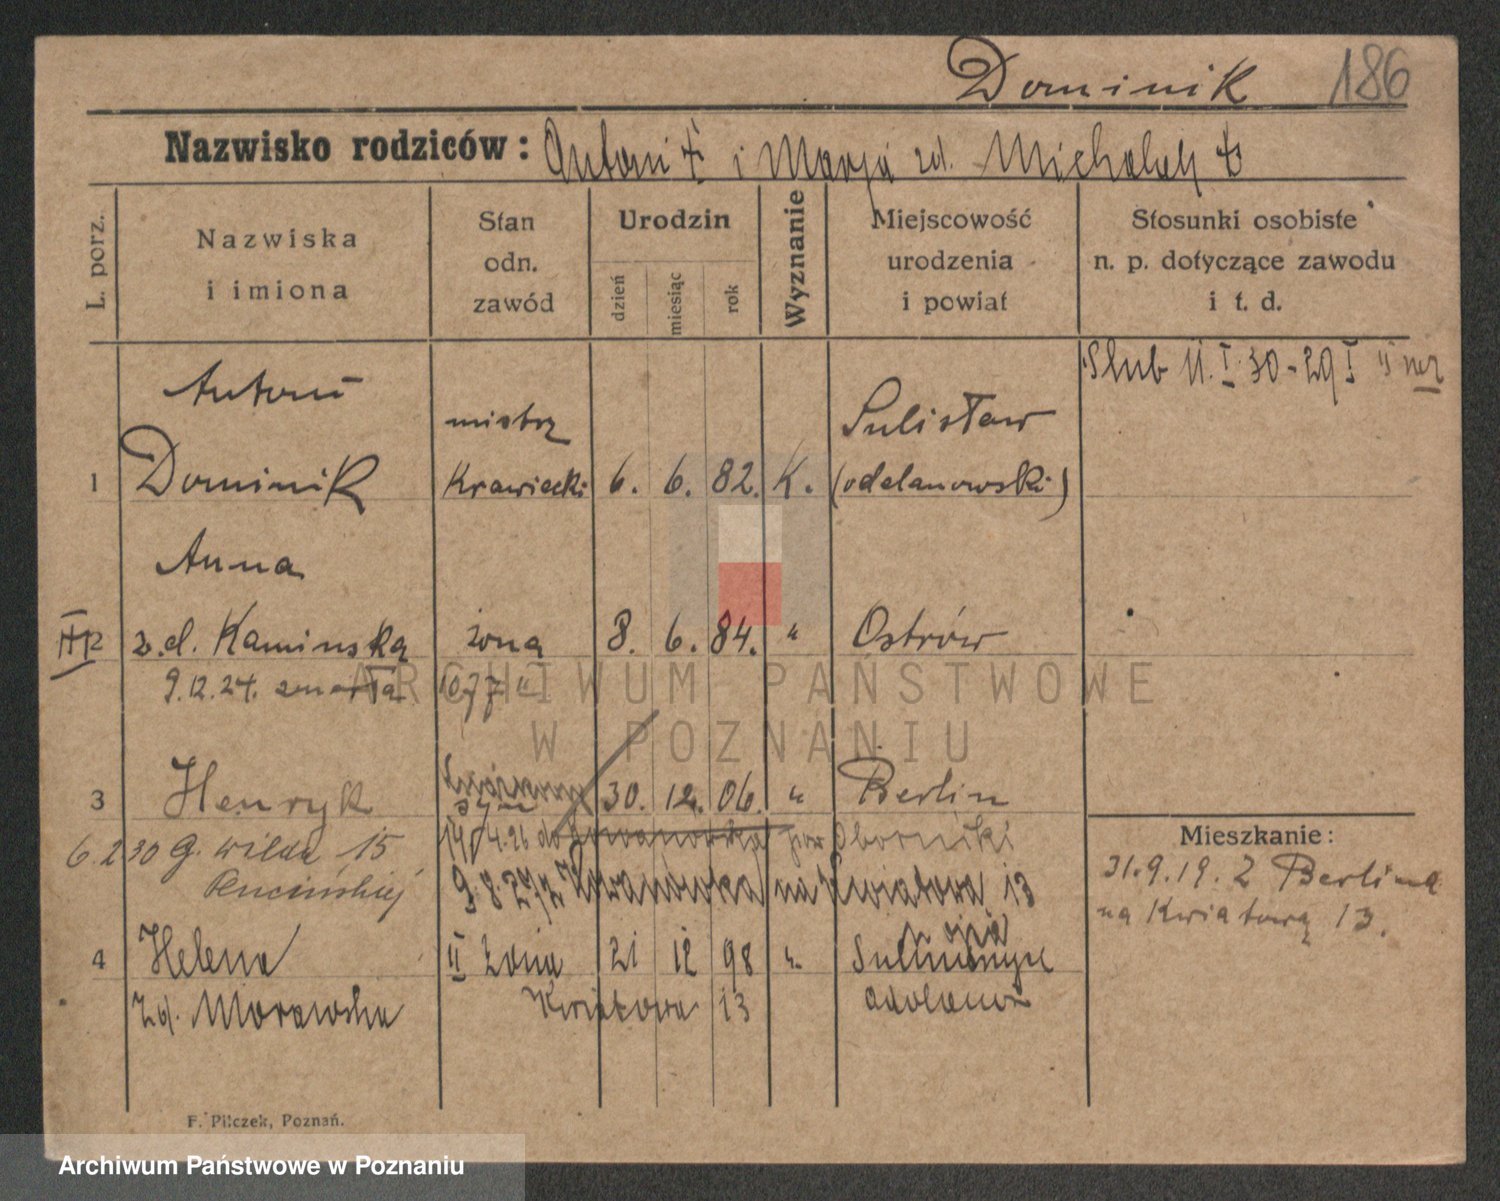 Dominik 186
Nazwisko rodziców: Antoni i Marja zd. Michalak
L. porz.
Nazwiska
i imiona
Stan
odn.
zawód
Urodzin
dzień
miesiąc
rok
Wyznanie
Miejscowość
urodzenia
i powiat
Stosunki osobiste
n. p. dotyczące zawodu
i t. d.
Ślub 11. I. 30 - 29 I
Antoni
mistrz
Sulisław
1 Dominik Krawiecki 6. 6. 82. K. (odolanowski)
Anna
2 z.d. Kamińska żona 8. 6. 84. " Ostrów
9.12.24. zmarła
3 Henryk syn 30. 12. 06. " Berlin
14/4.26 do pow Oborniki
6.2 30 G. Wilda 15
9.8.27 z na Kwiatowa 13
Mieszkanie:
31.9.19. z Berlina
na Kwiatową 13.
4 Helena II żona 21 12 98 "
zd. Morawska Kwiatowa 13
F. Pilczek, Poznań.
ARCHIWUM PAŃSTWOWE
W POZNANIU
Archiwum Państwowe w Poznaniu